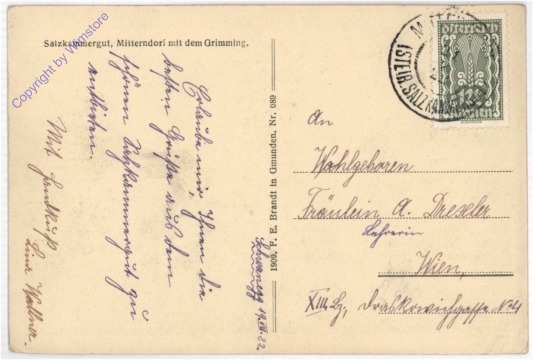 Copyright by Wamstore
Salzkammergut, Mitterndorf mit dem Grimming.
Erlaube mir, Ihnen die
besten Grüße aus dem
schönen Salzkammergut zu
entbieten.
Mit Handkuß
Lina Wallner.
1909, F. E. Brandt in Gmunden. Nr. 089
MITTERN
(STEIR. SALZKAMMERGUT)
An
Wohlgeboren
Fräulein A. Drexler
Lehrerin
Wien,
XIII. Bz., Draskovichgasse No 4